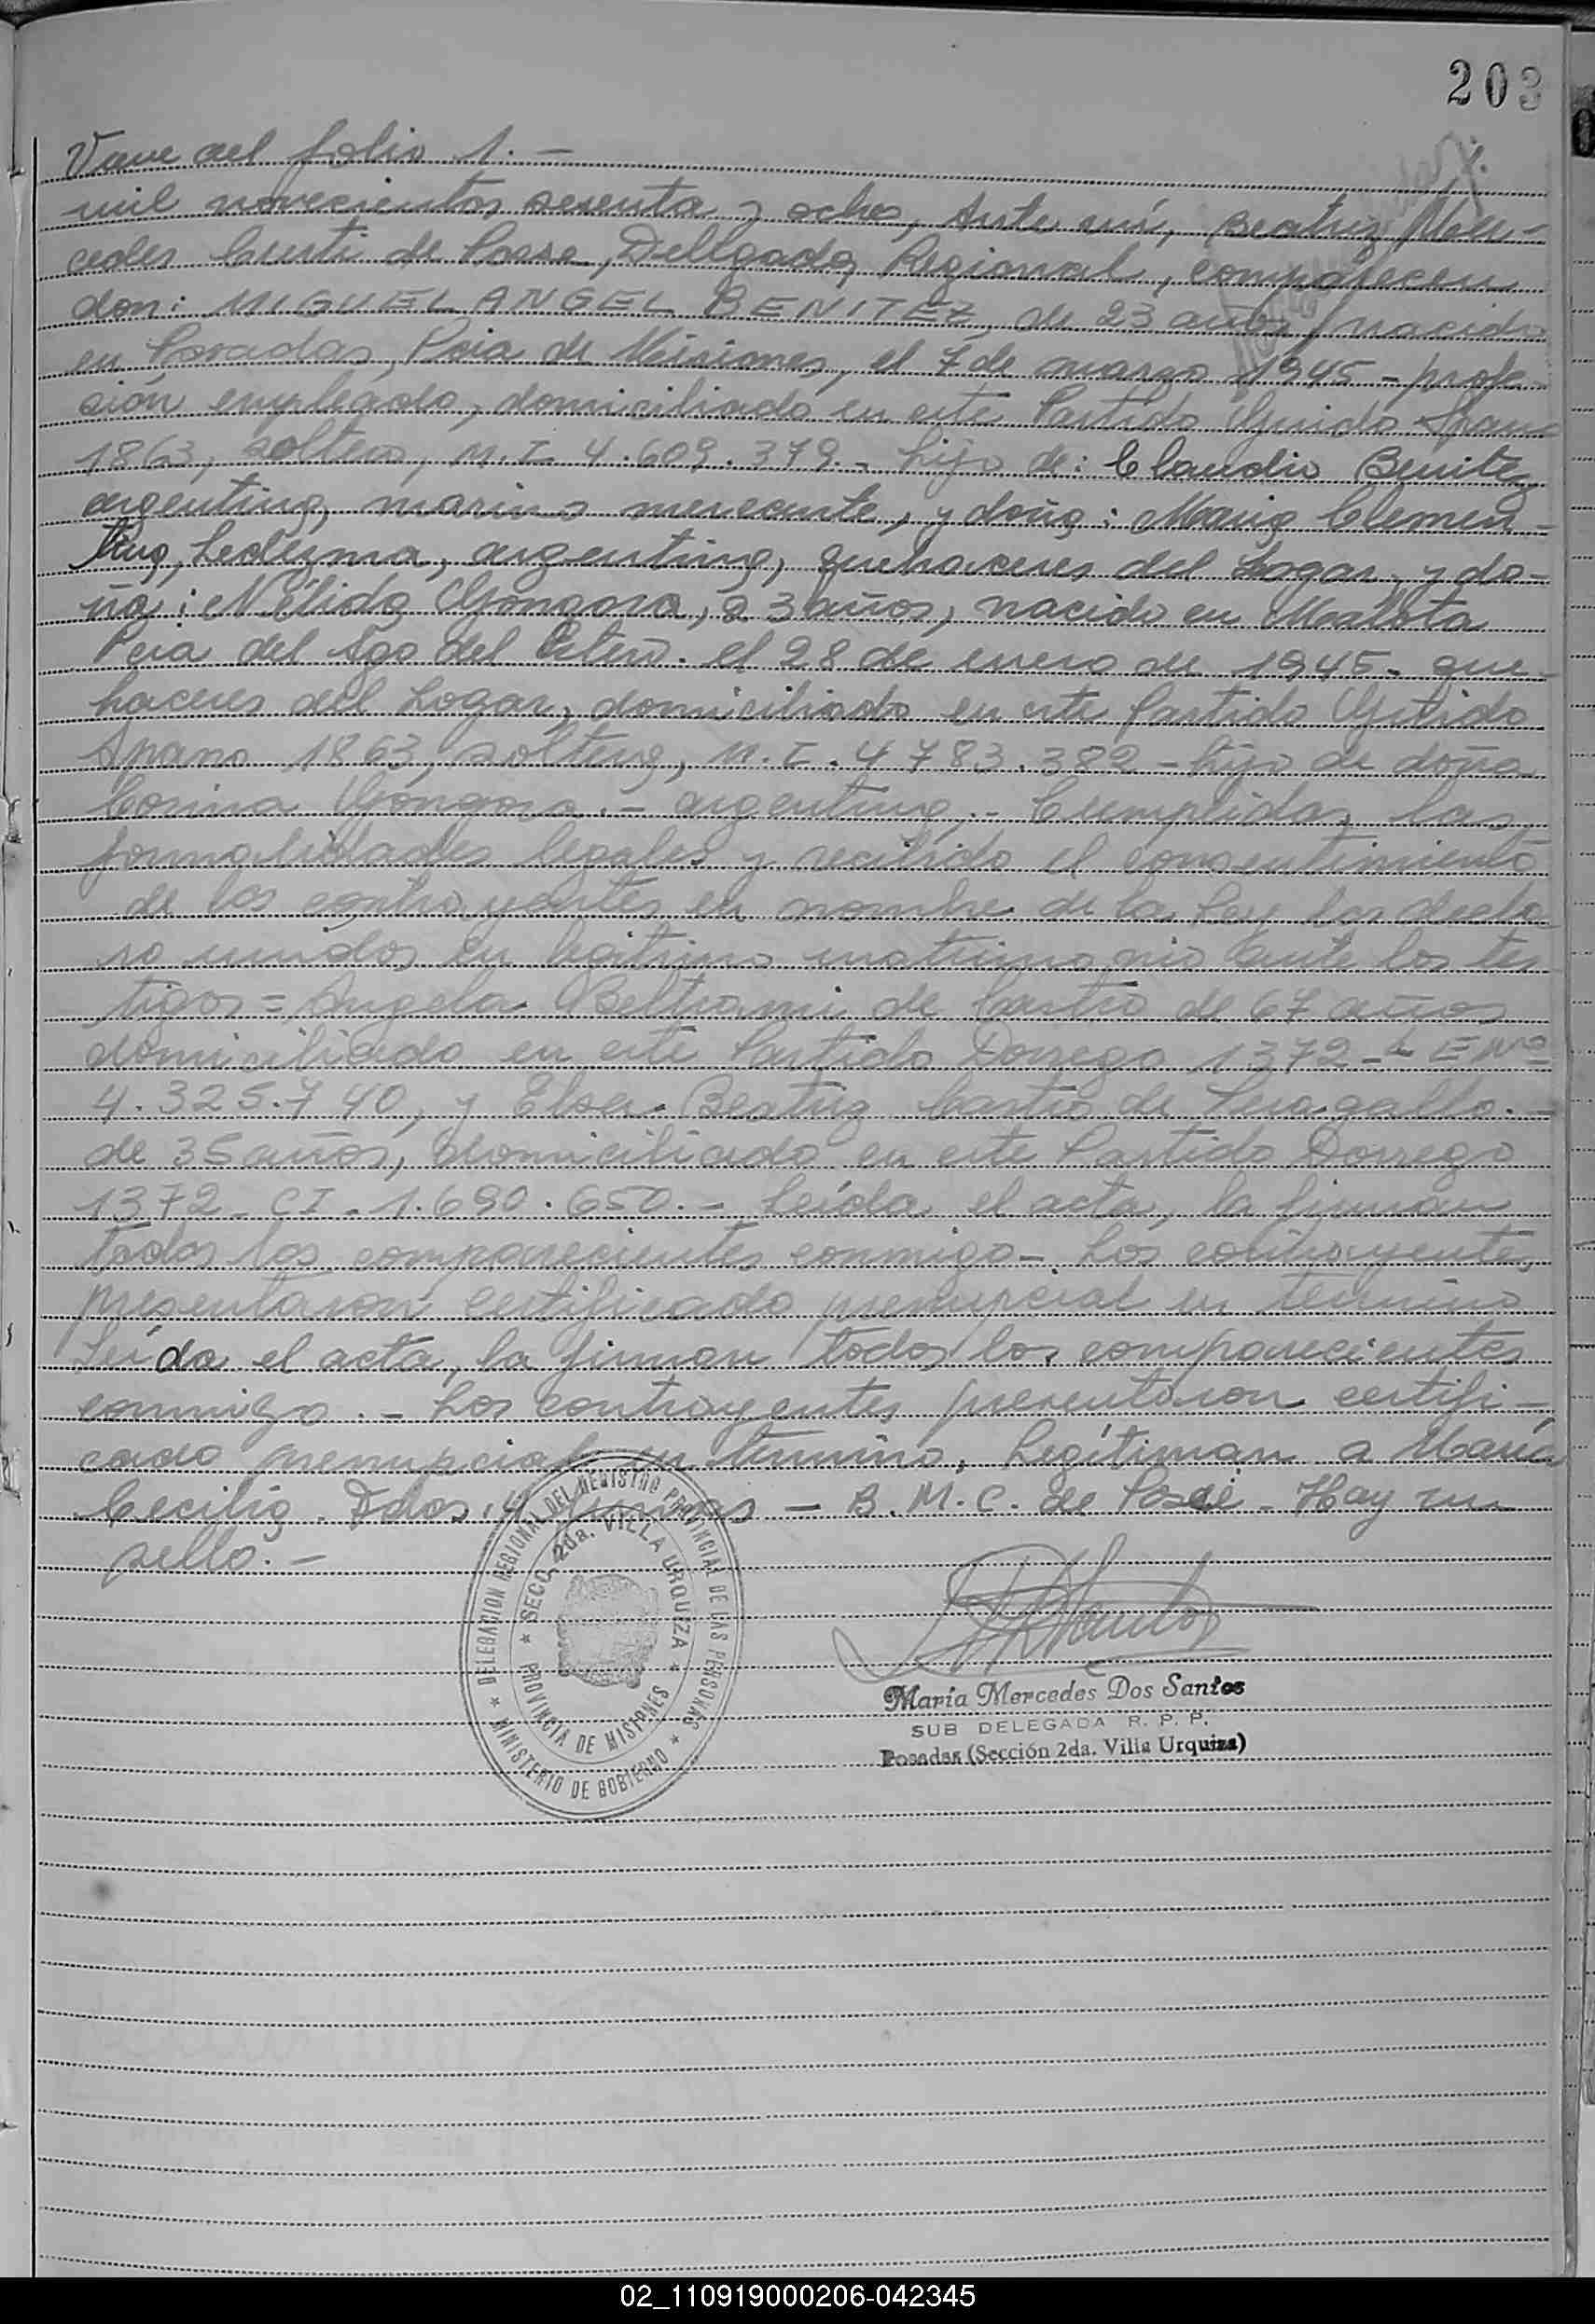 203
Viene del folio 1. —
mil novecientos sesenta y ocho, Ante mí, Beatriz Mer-
cedes Curti de Posse, Delegada Regional, comparecen
don: MIGUEL ANGEL BENITEZ, de 23 años, nacido
en Posadas, Pcia de Misiones, el 7 de marzo 1945 - profe-
sión empleado, domiciliado en este Partido Guido Spano
1863, soltero, M.I. 4.609.379.- hijo de: Claudio Benitez
argentino, marino mercante, y doña: Maria Clemen-
tina, Ledezma, argentina, quehaceres del hogar, y do-
ña: Nélida Góngora, 23 años, nacido en Mailota
Pcia del Sgo del Estero. el 28 de enero de 1945- que-
haceres del hogar, domiciliada en este Partido Guido
Spano 1863, soltera, M.I. 4 783.382 - hija de doña
Corina Góngora.- argentina.- Cumplidas las
formalidades legales y recibido el consentimiento
de los contrayentes en nombre de la Ley los decla
ro unidos en legitimo matrimonio ante los tes
tigos = Angela Beltrami de Castro de 67 años
domiciliado en este Partido Dorrego 1372 - L E Nro
4.325.740, y Elsa Beatriz Castro de Peragallo.-
de 35 años, domiciliado en este Partido Dorrego
1372 - CI - 1.690.650.- Leída el acta, la firman
todos los comparecientes conmigo - Los contrayentes,
presentaron certificado prenupcial en término
Leída el acta, la firman todos los comparecientes
conmigo.- Los contrayentes presentaron certifi-
cado prenupcial en término, Legítiman a María
Cecilia. Ddos. 4 firmas - B. M. C. de Posse - Hay un
sello. -
DELEGACION REGIONAL DEL REGISTRO PROVINCIAL DE LAS PERSONAS
SECC. 2da. VILLA URQUIZA
PROVINCIA DE MISIONES
MINISTERIO DE GOBIERNO
María Mercedes Dos Santos
SUB DELEGADA R. P. P.
Posadas (Sección 2da. Villa Urquiza)
02_110919000206-042345